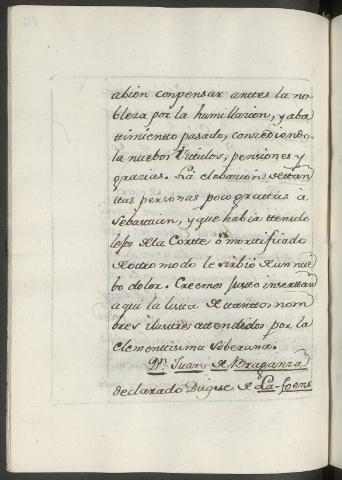 abien conpensar anttes la no-
bleza por la humillacion, y aba
ttimientto pasado, conzediendo-
la nuebos Titulos, pensiones y
grazias. La elebacion de ttan
ttas personas poco grattas à
Sebasttian, y que habia ttenido
lejos de la Cortte ò morttificado
de ottro modo le sirbió de un nue
bo dolor. Creemos justto inserttar
aqui la listta de ttanttos nom
bres ilusttres attendidos por la
Clementtisima Soberana.
Dn. Juan de Braganza
declarado Duque de La-foens